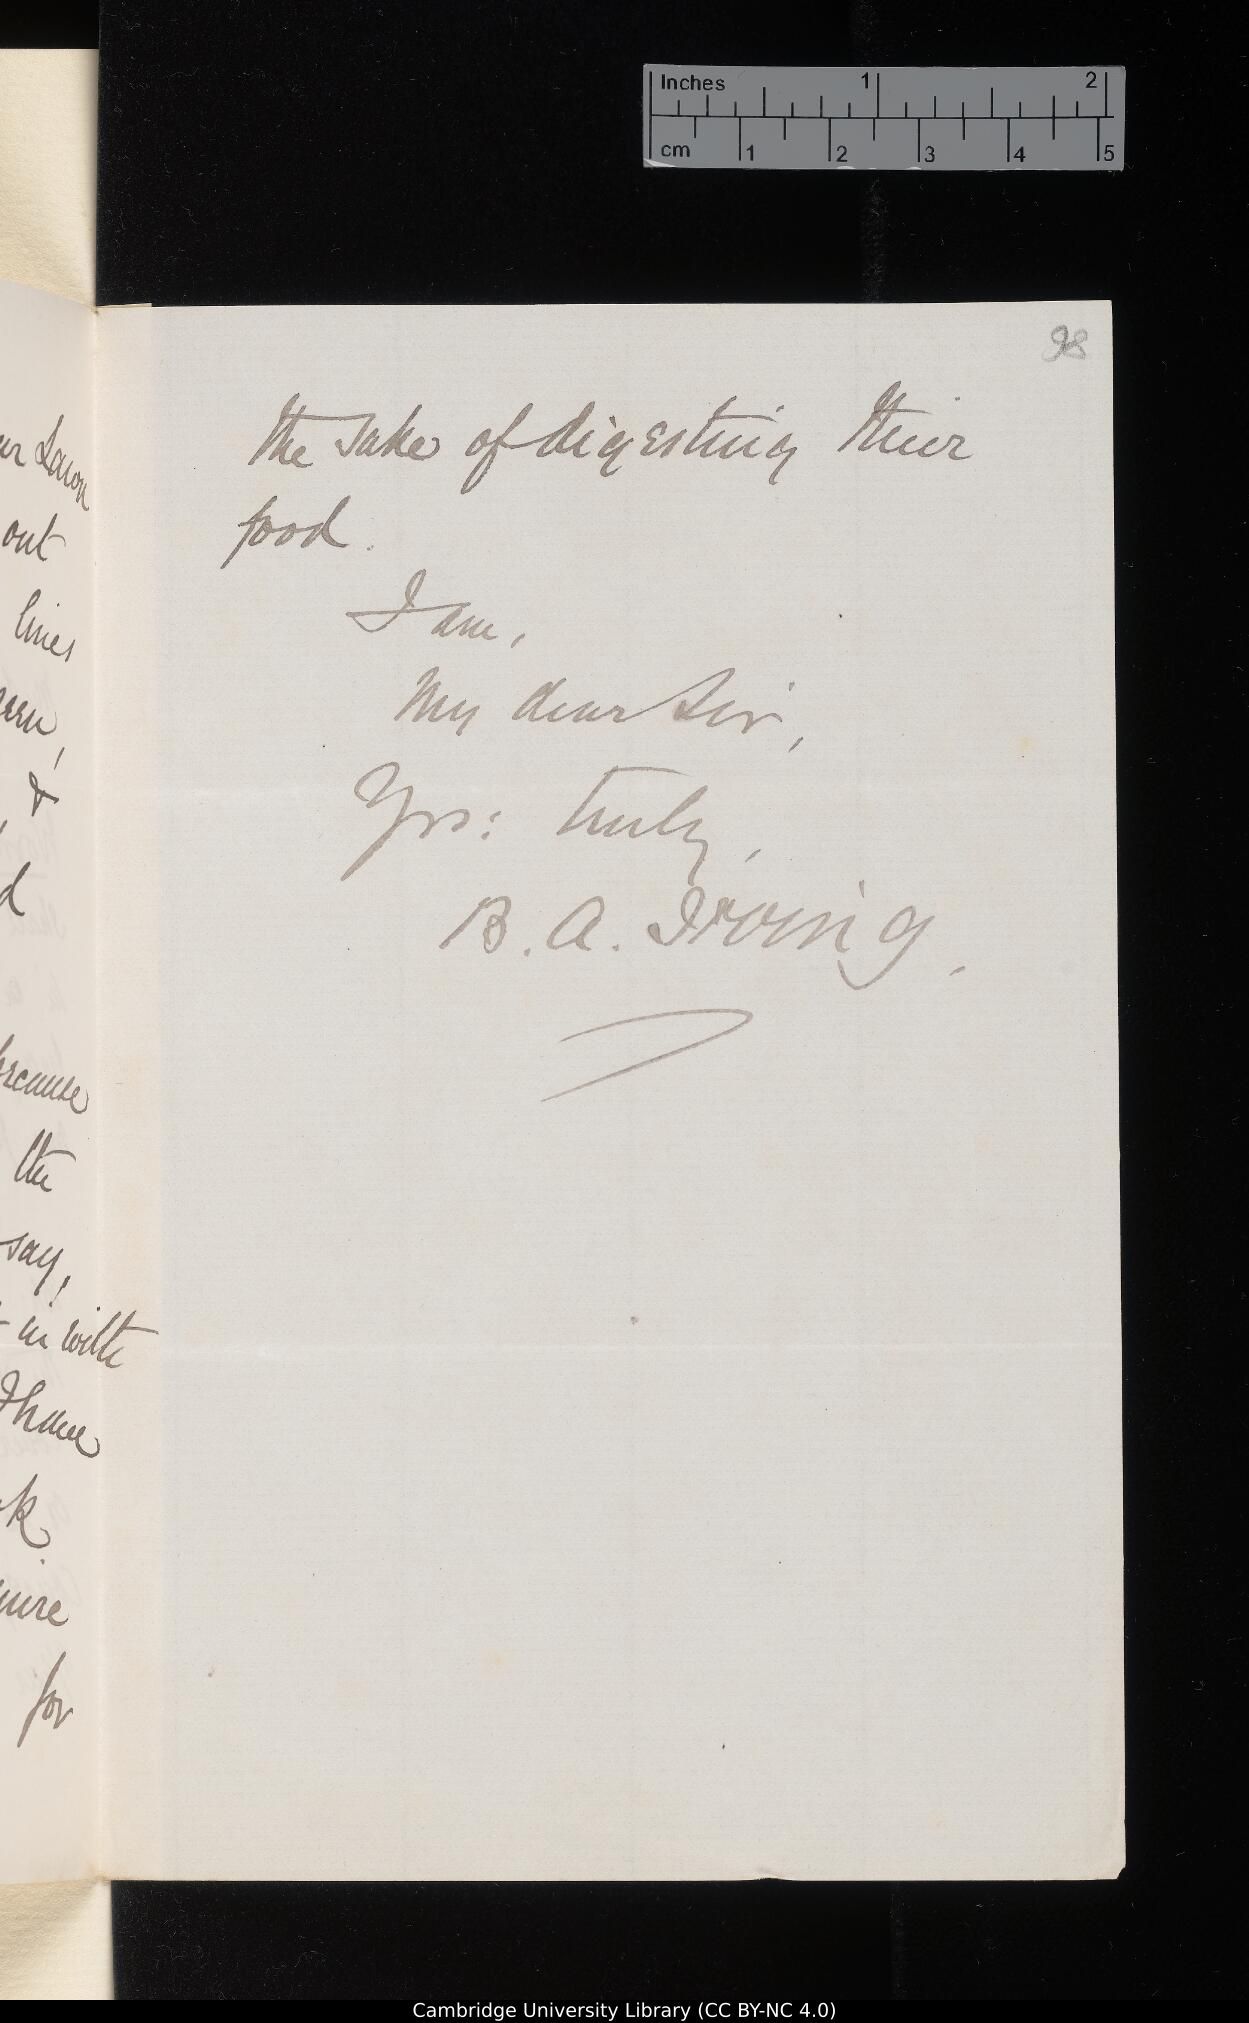 Inches 1 2
cm 1 2 3 4 5
98
out
lines
&
because
the
say,
in with
I have
for
the sake of digesting their
food.
I am,
My dear Sir,
Yrs: truly,
B. A. Irving,
Cambridge University Library (CC BY-NC 4.0)